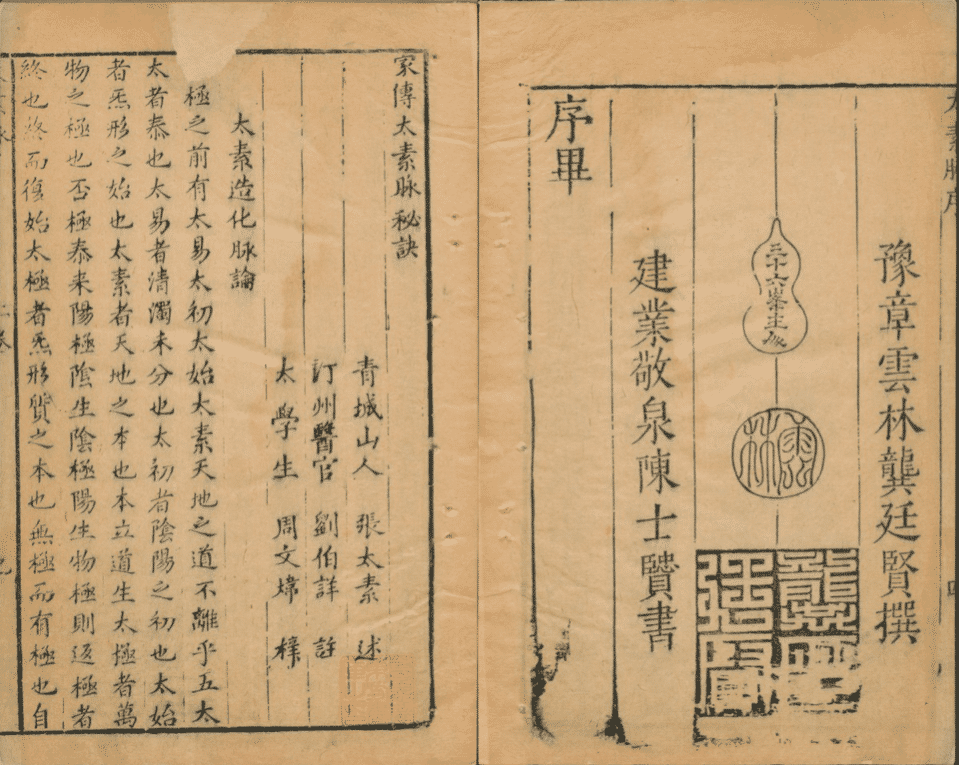 太素脉序
豫章雲林龔廷賢撰
三十六峯主人
雲林
建業敬泉陳士書
序畢
家傳太素脉秘訣
青城山人 張太素 述
汀州醫官 劉伯詳 註
太學生 周文煒 榟
太素造化脉論
極之前有太易太初太始太素天地之道不離乎五太
太者泰也太易者清濁未分也太初者陰陽之初也太始
者炁形之始也太素者天地之本也本立道生太極者萬
物之極也否極泰来陽極陰生陰極陽生物極則返極者
終也終而復始太極者炁形質之本也無極而有極也自